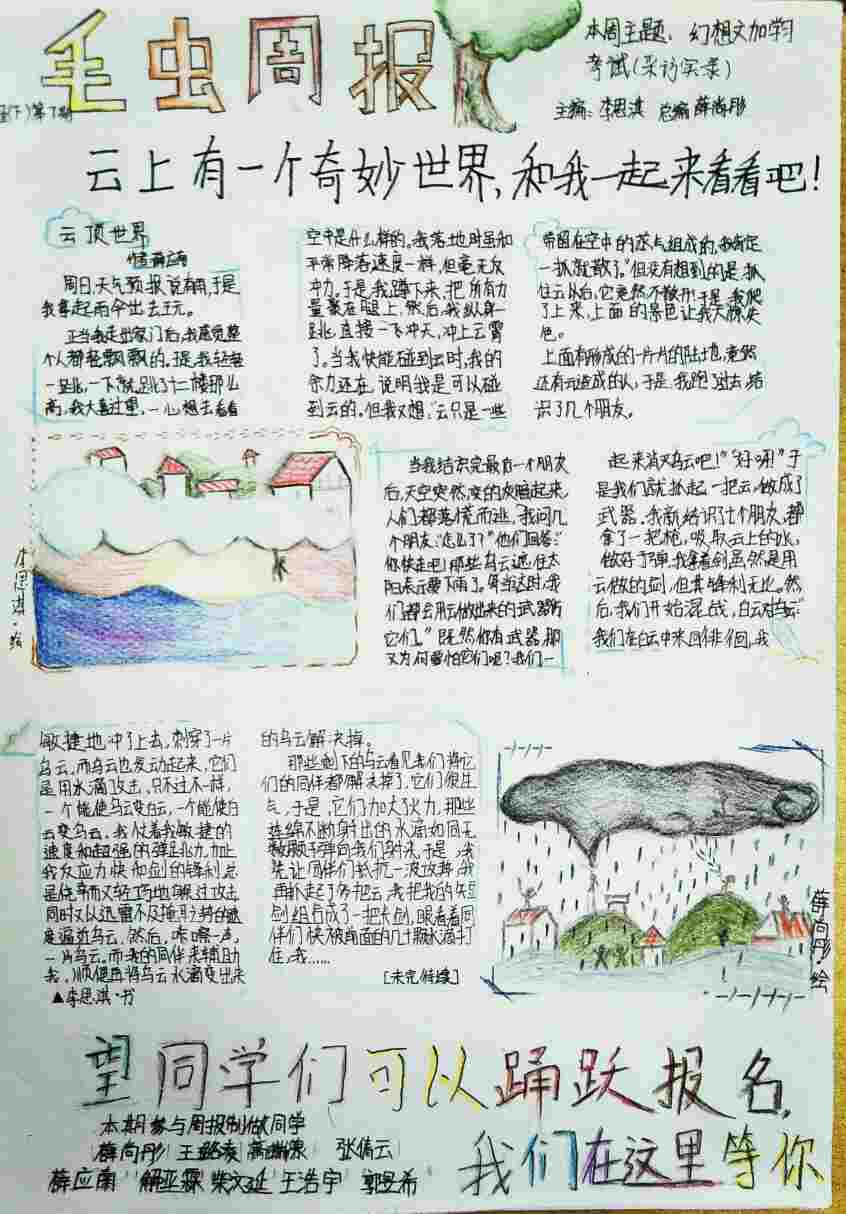 毛虫周报
本周主题：幻想文加学习
考试（采访实录）
(下)第7期
主编：李思淇 总编 薛尚彤
云上有一个奇妙世界，和我一起来看看吧！
云顶世界
周日，天气预报说有雨，于是
我拿起雨伞出去玩。
正当我走出家门后，我感觉整
个人都轻飘飘的。于是，我轻轻
一跳，一下就跳了十二楼那么
高，我大喜过望，一心想去看看
空中是什么样的。我落地时虽和
平常降落速度一样，但毫无反
冲力。于是我蹲下来，把所有力
量聚在腿上，然后，我纵身一
跳，直接一飞冲天，冲上云霄
了。当我快能碰到云时，我的
余力还在，说明我是可以碰
到云的。但我又想：“云只是一些
帝留在空中的蒸气组成的，我肯定
一抓就散了。”但没有想到的是，抓
住云以后，它竟然不散开！于是，我爬
了上来，上面的景色让我大惊失
色。
上面有形成的一片片的陆地，竟然
还有云造成的人，于是，我跑了过去，结
识了几个朋友。
李思淇·绘
当我结识完最后一个朋友
后，天空突然变的灰暗起来，
人们都落慌而逃，我问几
个朋友：“怎么了？”他们回答：“
你快走吧！那些乌云遮住太
阳表示要下雨了。每当这时，我
们都会用云做出来的武器斩
它们。”“既然你有武器，那
又为何要怕它们呢？我们一
起来消灭乌云吧！”“好呀！”于
是我们就抓起一把云，做成了
武器。我新结识了个朋友，都
拿了一把枪，吸取云上的水，
做好子弹。我拿着剑虽然是用
云做的剑，但其锋利无比。然
后，我们开始混战，白云对乌云：
我们在白云中来回徘徊，我
敏捷地冲了上去，刺穿了一片
乌云，而乌云也发动起来，它们
是用水滴攻击，只不过不一样，
一个能使乌云变白云，一个能使白
云变乌云。我仗着我敏捷的
速度和超强的弹跳力，加上
我反应力快和剑的锋利，总
是侥幸而又轻巧地躲过攻击，
同时又以迅雷不及掩耳之势的速
度逼近乌云，然后，咔嚓一声，
一片乌云。而我的同伴来辅助
我，顺便再将乌云水滴变出来
▲李思淇·书
的乌云解决掉。
那些剩下的乌云看见我们将它
们的同伴都解决掉了，它们很生
气，于是，它们加大了火力，那些
连绵不断射出的水滴如同无
数颗子弹向我们射来，于是，我
装让同伴们抵抗一波攻势，我
再抓走了份把云，我把我的短
剑组合成了一把长剑，眼看着同
伴们快被背面的几十颗水滴打
住，我……
[未完/待续]
薛尚彤·绘
望同学们可以踊跃报名，
我们在这里等你
本期参与周报制做同学
薛尚彤 张倩云
薛应南 解亚霖 柴文延 王浩宇 郭昱希